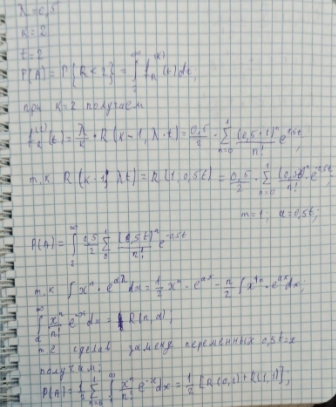 λ=0,5
k=2
t=2
P(A) = P{R<2} = ∫ f_R^(2)(t)dt,
при k=2 получаем
f_R^(2)(t) = λ/k · R(k-1, λ·t) = 0,5/2 · Σ (0,5·t)^n/n! e^-0,5t
т.к. R(k-1, λt) = R(1, 0,5t) = 0,5/2 · Σ (0,5t)^n/n! e^-0,5t
m=1, a=0,5t;
P(A) = ∫ 0,5/2 Σ (0,5t)^n/n! e^-0,5t
т.к ∫ x^n · e^ax dx = 1/2 x^n · e^ax - n/2 ∫ x^n-1 · e^ax dx;
∫ x^n/n! e^-x dx = R(n,a);
т.е. сделав замену переменных 0,5t=x
получим:
P(A) = 1/2 Σ ∫ x^n/n! e^-x dx = 1/2 [R(0,1) + R(1,1)];